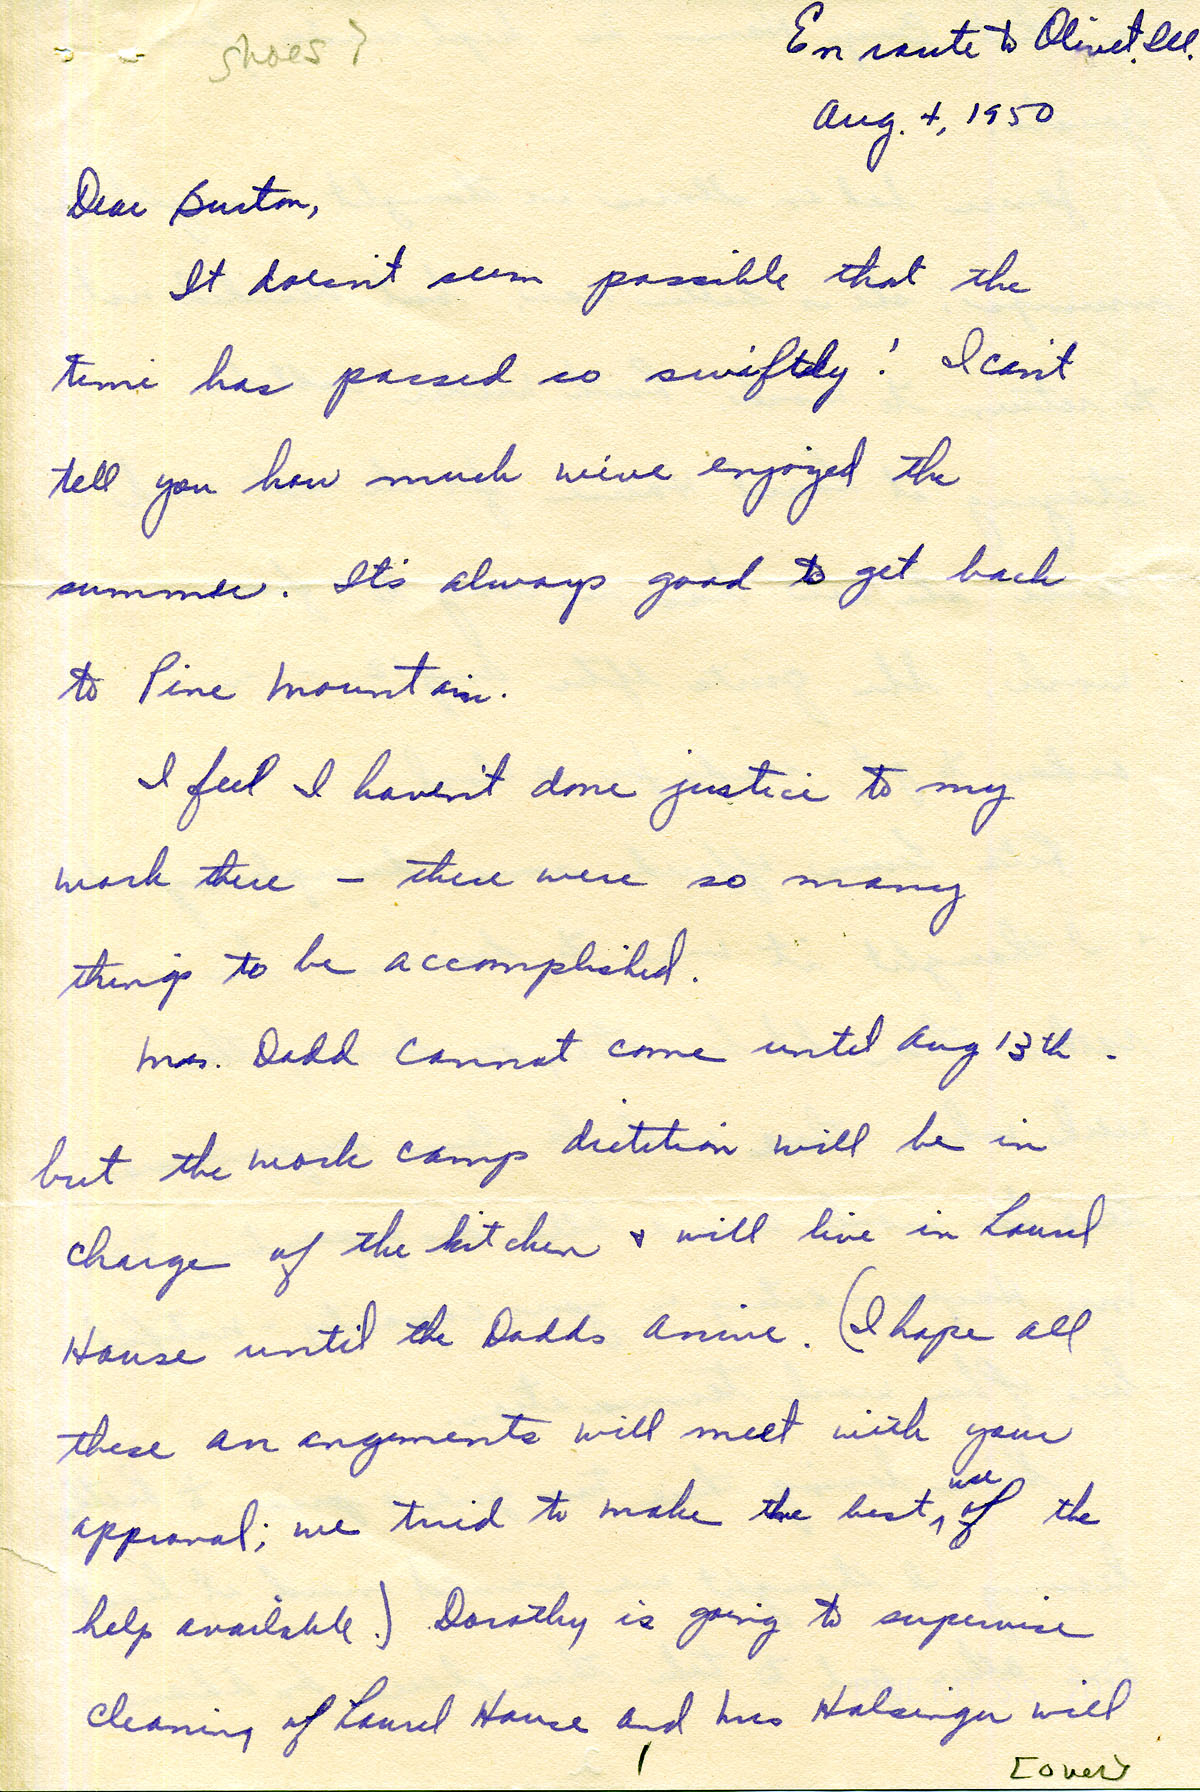 shoes?
En route to Olivet, Ill.
Aug. 4, 1950
Dear Burton,
It doesn't seem possible that the
time has passed so swiftly! I can't
tell you how much we've enjoyed the
summer. It's always good to get back
to Pine Mountain.
I feel I haven't done justice to my
work there – there were so many
things to be accomplished.
Mrs. Dodd cannot come until Aug 13th -
but the work camp dietition will be in
charge of the kitchen & will live in Laurel
House until the Dodds arrive. (I hope all
these arrangements will meet with your
approval; we tried to make the best use of the
help available.) Dorothy is going to supervise
cleaning of Laurel House and Mrs Holsinger will
1
[over]